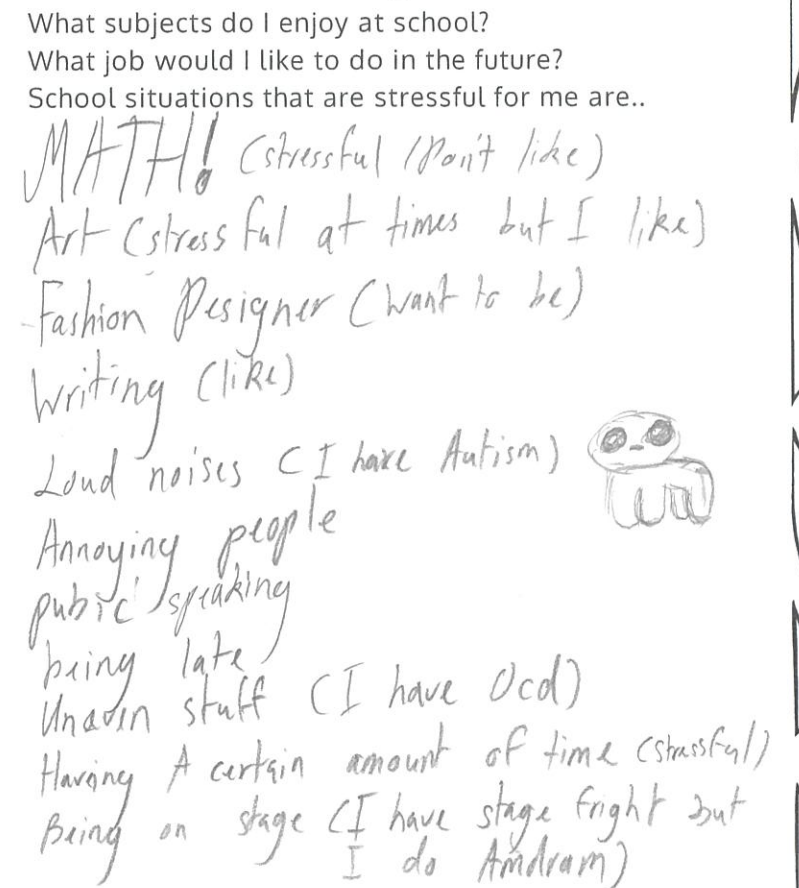 What subjects do I enjoy at school?
What job would I like to do in the future?
School situations that are stressful for me are..
MATH! (stressful / Don't like)
Art (stressful at times but I like)
Fashion Designer (want to be)
Writing (like)
Loud noises (I have Autism)
Annoying people
pubic speaking
being late
Unavin stuff (I have Ocd)
Having A certain amount of time (stressful)
Being on stage (I have stage fright but
I do Amdram)